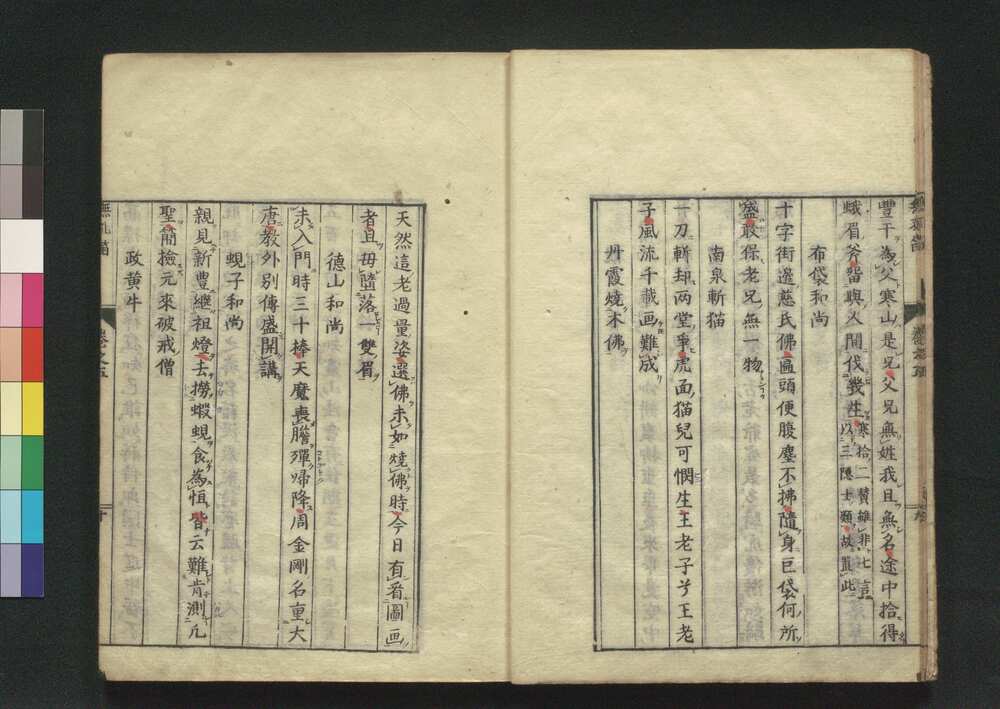 豐干為父寒山是兄父兄無姓我且無名途中拾得
蛾眉斧留與人間伐幾生寒拾二贊雖非七言
以三隱士類故置此
布袋和尚
十字街邊慈氏佛匾頭便腹塵不拂隨身巨袋何所
盛敢保老兄無一物
南泉斬猫
一刀斬却兩堂事虎面猫兒可憫生王老子兮王老
子風流千載画難成
丹霞燒木佛
天然這老過量姿選佛未如燒佛時今日有看圖画
者且毋墮落一雙眉
德山和尚
未入門時三十棒天魔喪膽殫帰降周金剛名重大
唐教外别傳盛開講
蜆子和尚
親見新豐繼祖燈去撈蝦蜆食為恒皆云難肯測凡
聖簡撿元來破戒僧
政黄牛
無孔笛
卷之五